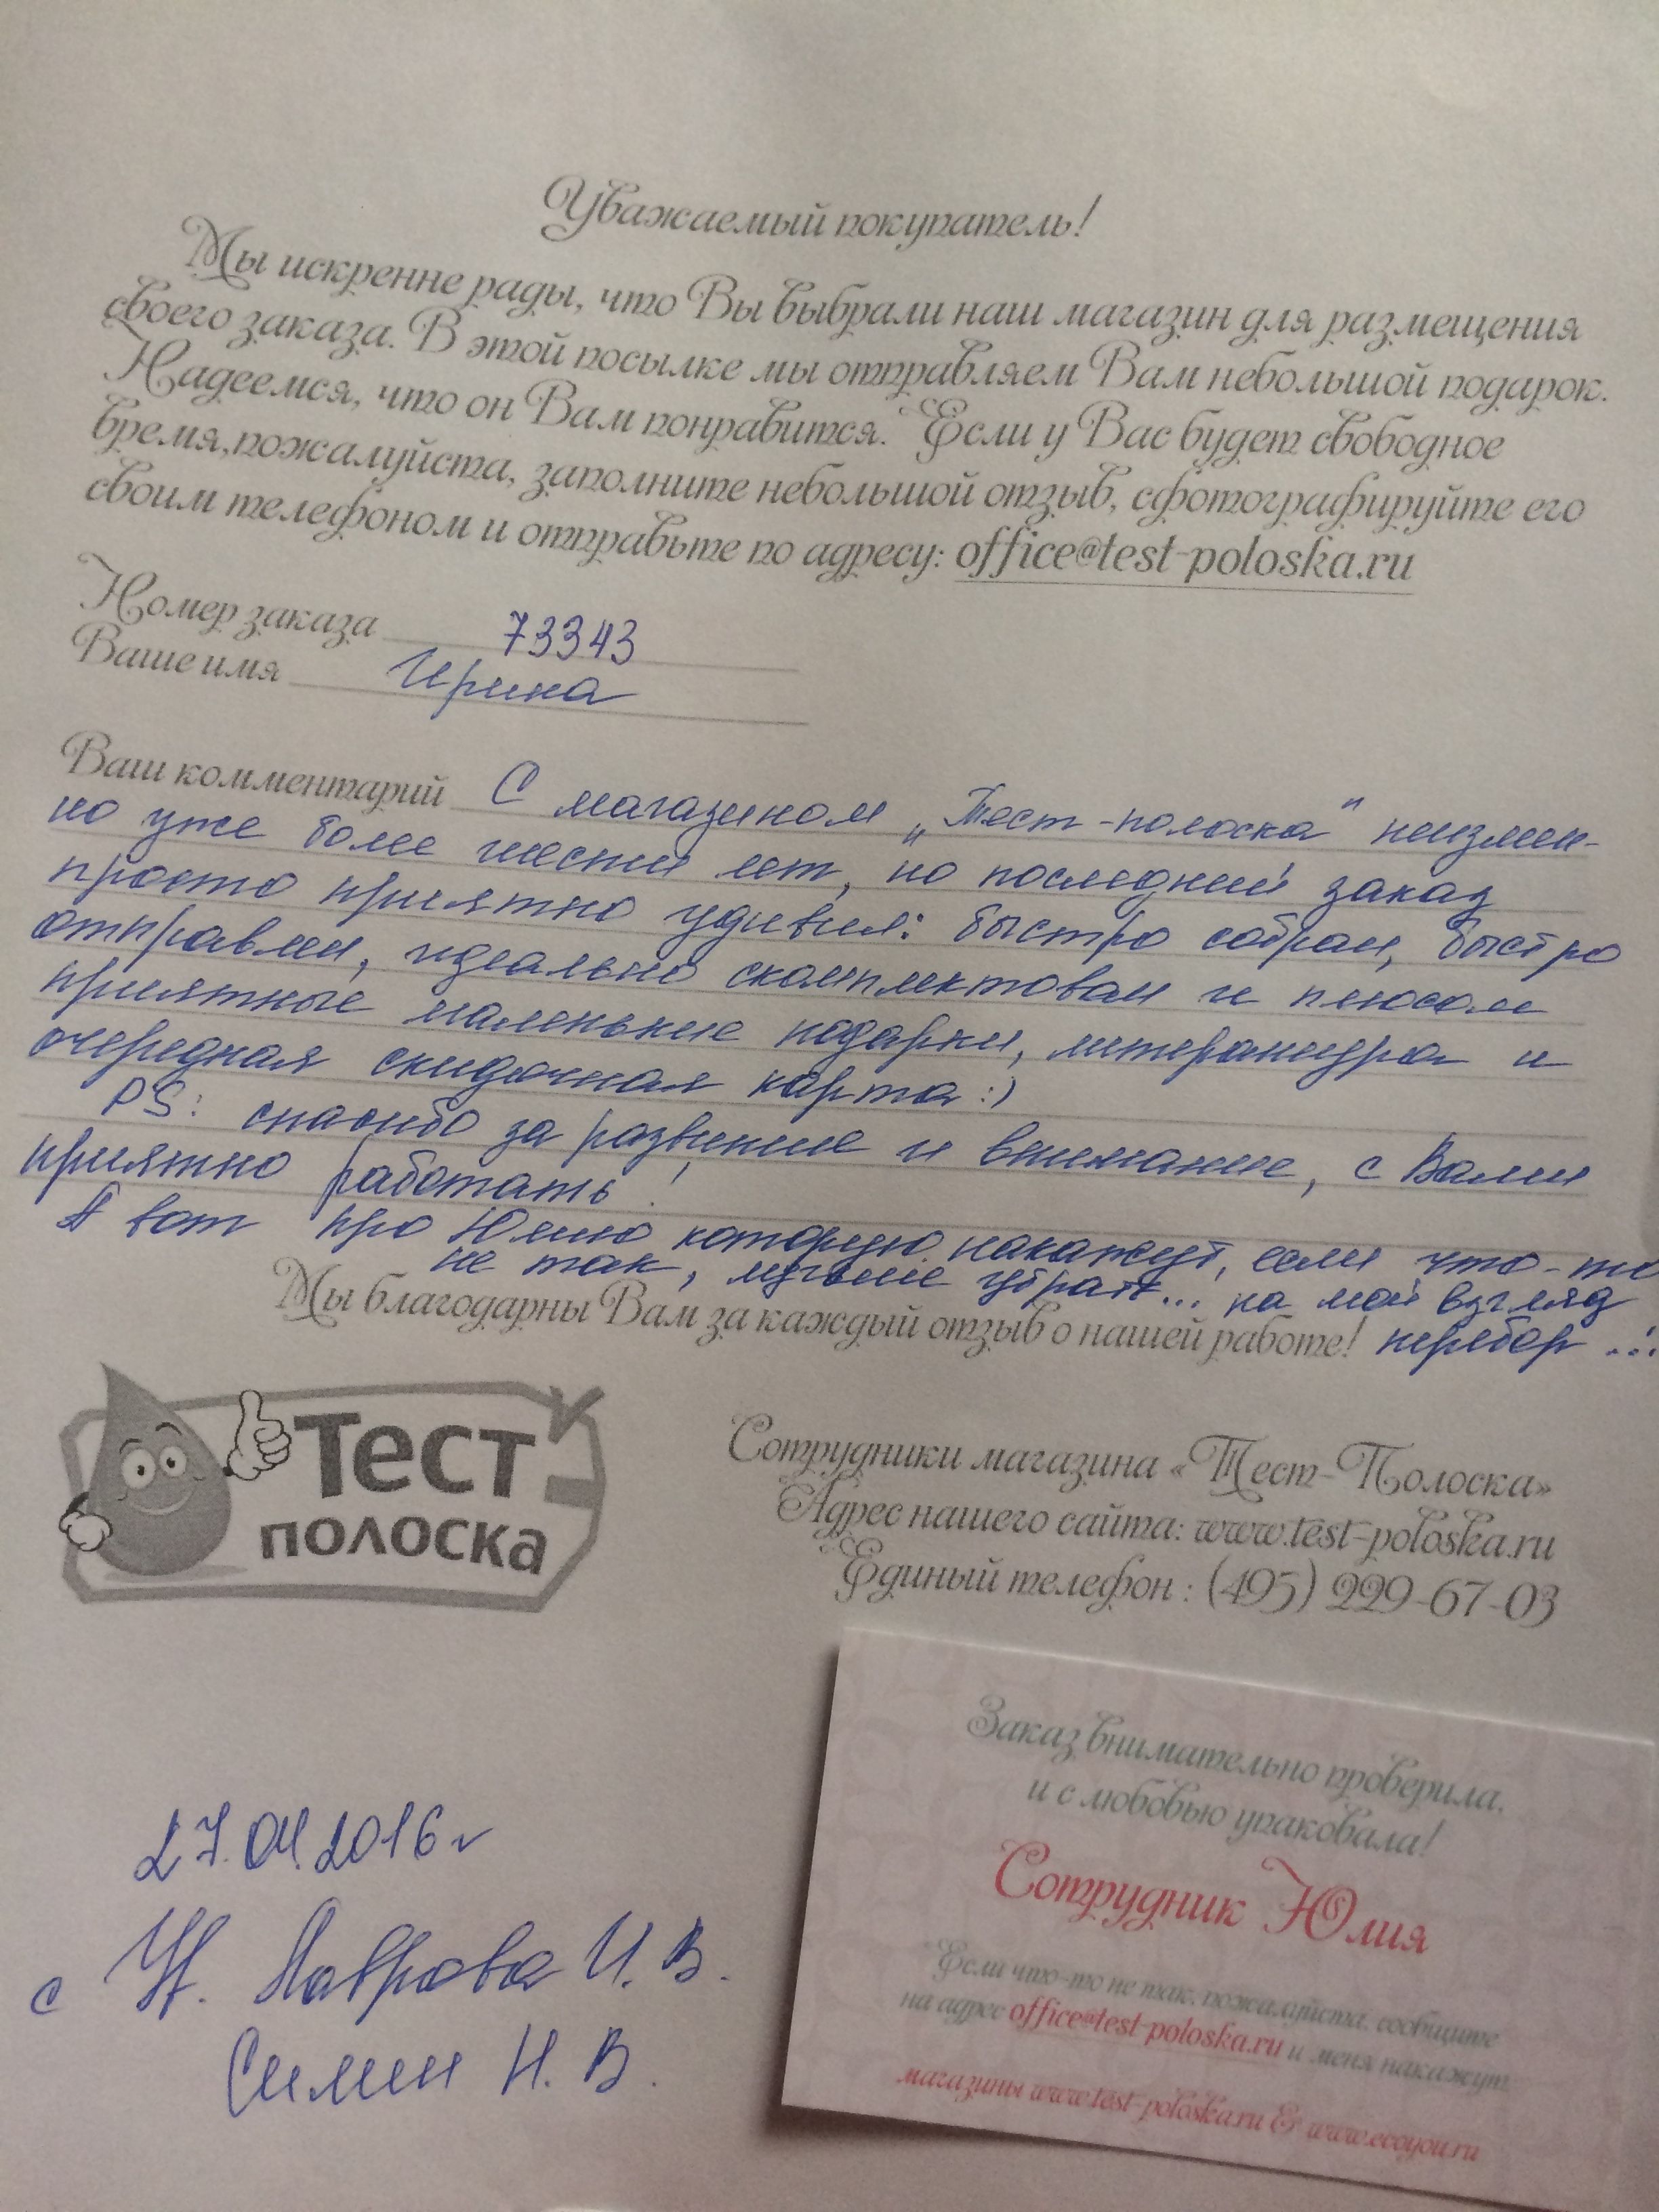 Уважаемый покупатель!
Мы искренне рады, что Вы выбрали наш магазин для размещения
своего заказа. В этой посылке мы отправляем Вам небольшой подарок.
Надеемся, что он Вам понравится. Если у Вас будет свободное
время,пожалуйста, заполните небольшой отзыв, сфотографируйте его
своим телефоном и отправьте по адресу: office@test-poloska.ru
Номер заказа 73343
Ваше имя Ирина
Ваш комментарий С магазином „Тест-полоска" неизмен-
но уже более шести лет, но последний заказ
просто приятно удивил: быстро собран, быстро
отправлен, идеально скомплектован и плюсом
приятные маленькие подарки, литература и
очередная скидочная карта :)
PS: спасибо за развитие и внимание, с Вами
приятно работать!
А вот про Юлию которую накажут, если что-то
не так, лучше убрать... на мой взгляд
Мы благодарны Вам за каждый отзыв о нашей работе! перебор ...
Тест
полоска
Сотрудники магазина «Тест-Полоска»
Адрес нашего сайта: www.test-poloska.ru
Единый телефон : (495) 229-67-03
27.04.2016г
с Ув. Лаврова И. В.
Силин Н. В.
Заказ внимательно проверила,
и с любовью упаковала!
Сотрудник Юлия
Если что-то не так, пожалуйста, сообщите
на адрес office@test-poloska.ru и меня накажут.
магазины www.test-poloska.ru & www.ecoyou.ru